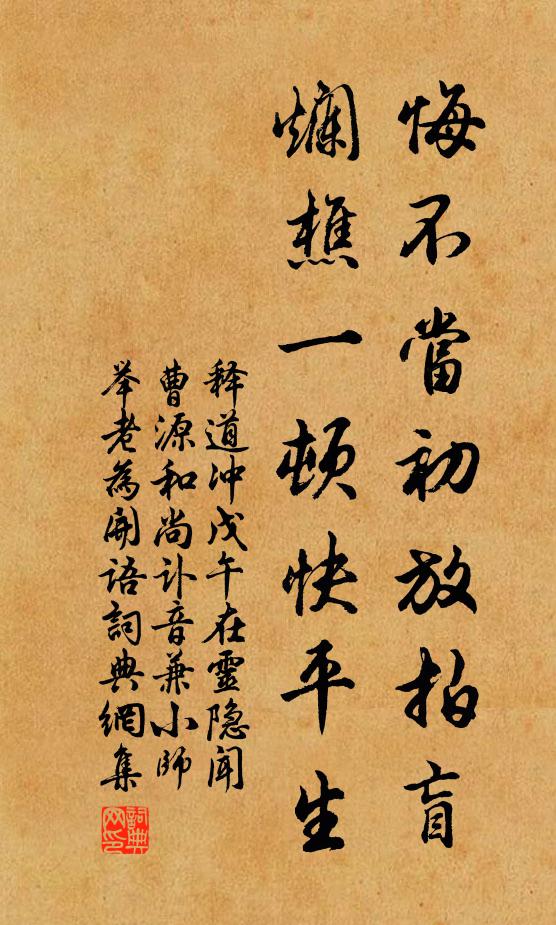 悔不當初放拍盲
爛樵一頓快平生
释道冲戊午在靈隐闻
曹源和尚讣音兼小师
举老為開語詞典網集
詞典网印